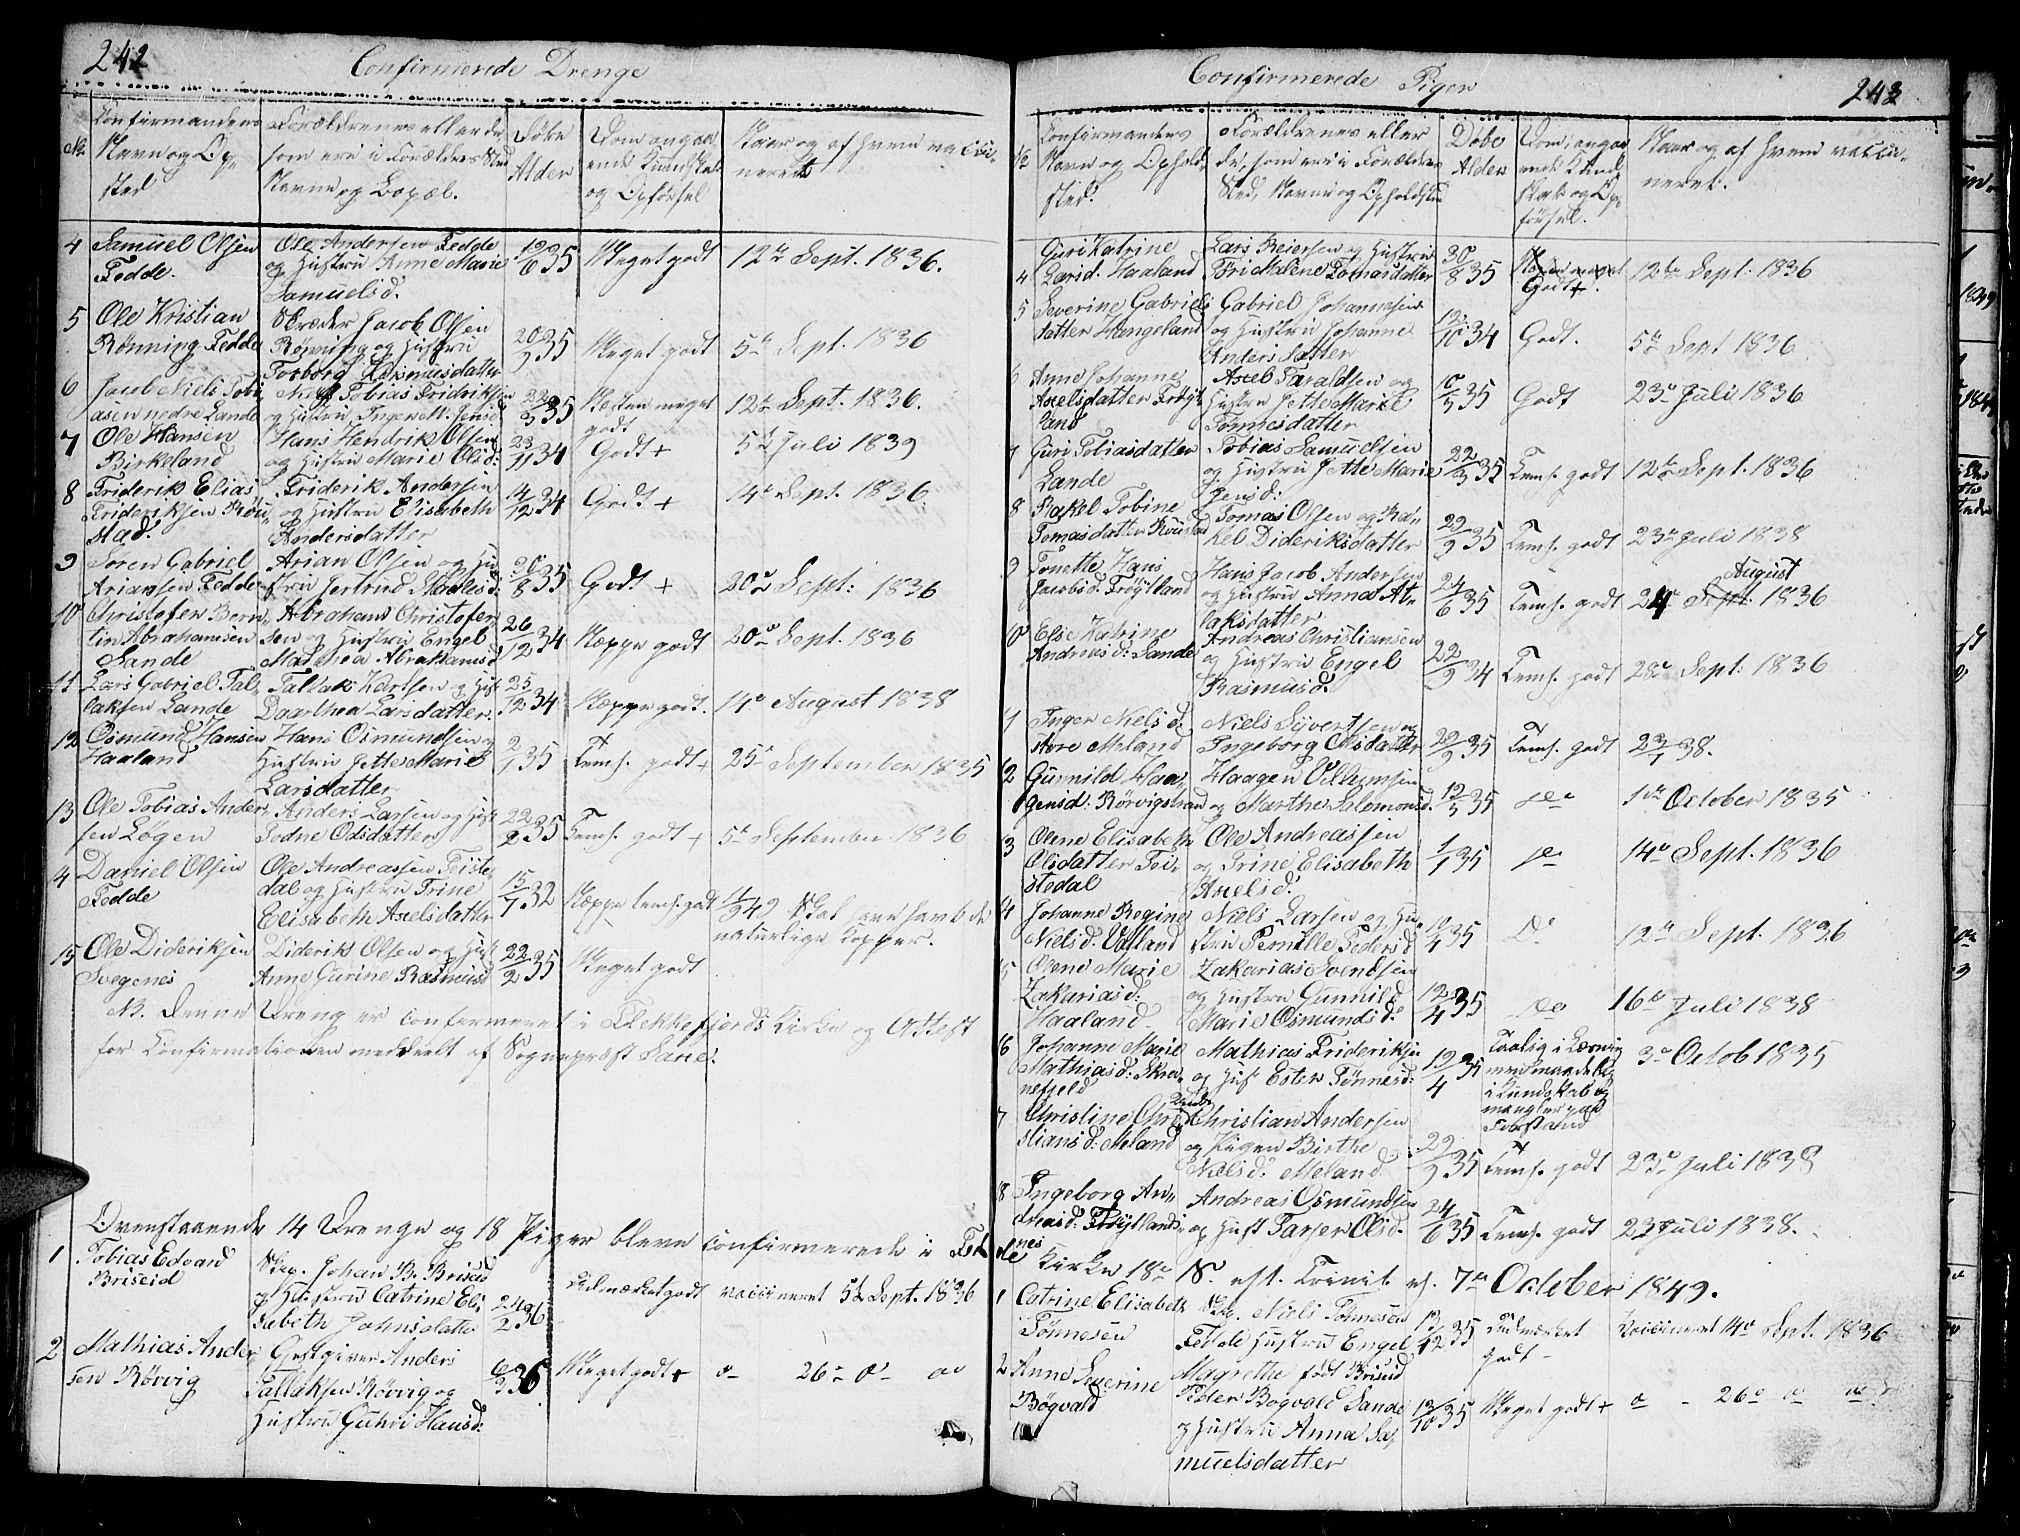 242
Confirmerede Drenge
No.
Confirmandens
Navn og Op-
sted
Forældrenes eller de
som ere i Forældres Sted
Navne og Bopæl.
Døbe
Alder
Dom angaa
ende Kundskab
og Opførsel
Naar og af hvem vacci-
neret
4
Samuel Olsen
Fedde.
Ole Andersen Fedde
og Hustru Anne Marie
Samuelsd.
12/6 35
Meget godt
12te Sept. 1836.
5
Ole Kristian
Rønning Fedde
Skræder Jacob Olsen
Rønning og Hustru
Torborg Rasmusdatter
20/7 35
Meget godt
5te Sept. 1836
6
Jacob Niels Tobi
asen nedre Lande
Niels Tobias Fridriksen
og Hustru Inger M. Jensd.
22/3 35
Næsten meget
godt
12te Sept. 1836.
7
Ole Hansen
Birkeland
Hans Hendrik Olsen
og Hustru Marie Olsd:
23/11 34
Godt +
5te Juli 1839
8
Friderik Elias
Frideriksen Røu-
stad.
Friderik Andersen
og Hustru Elisabeth
Andersdatter
14/12 34
Godt +
14de Sept. 1836.
9
Søren Gabriel
Ariansen Fedde
Arian Olsen og Hu
stru Jertrud Madlesd:
20/8 35
Godt +
20de Sept: 1836
10
Christofer Bern-
tin Abrahamsen
Sande
Abraham Christofer-
sen og Hustru Engel
Mathea Abrahamsd.
26/12 34
Næppe godt
20de Sept. 1836
11
Lars Gabriel Tal-
laksen Lande
Tallak Karlsen og Hust
Daarthea Larsdatter.
25/12 34
Næppe godt.
14de August 1838
12
Osmund Hansen
Haaland
Hans Osmundsen og
Hustru Jette Marie
Larsdatter
2/1 35
Temh. godt +
25de September 1835
13
Ole Tobias Ander
sen Løgen
Anders Larsen og Hust
Sodne Odsdatter
22/2 35
Temh. godt +
5te September 1836
4
Daniel Olsen
Fedde
Ole Andreassen Feiste-
dal og Hustru Trine
Elisabeth Axelsdatter
15/7 32
Næppe temh. godt
1/9 49 Skal have havt de
naturlige Kopper.
15
Ole Dideriksen
Svegenes
Diderik Olsen og Hust
Anne Gurine Rasmusd
22/2 35
Meget godt
NB. Denne Dreng er confirmeret i Flekkefjords Kirke og Attest
for Confirmationen meddeelt af Sognepræst Lane.
Ovenstaaende 14 Drenge og 18 Piger bleve confirmerede i Fed
1
Tobias Edvard
Briseid
Skp. Johan B. Briseid
og Hustru Catrine Eli
sabeth Johnsdatter
24/2 36
Udmærket godt
vaccineret 5te Sept. 1836
2
Mathias Ander
sen Rørvig
Gestgiver Anders
Tallaksen Rørvig og
Hustru Guhri Hansd:
6/3 36
Meget godt +
26de
Confirmerede Piger
243
No
Confirmandens
Navn og Ophold
sted.
Forældrenes eller
de, som ere i Forældres
Sted, Navne og Opholdsted
Døbe
Alder
Dom, angaa
ende Kund
skab og Op-
førsel.
Naar og af hvem vacci-
neret.
4
Guri Katrine
Larsd. Haaland
Lars Reiersen og Hustru
Fri Malene Tomasdatter
30/8 35
Næsten meget
Godt +.
12te Sept: 1836
5
Severine Gabriels
datter Hangeland
Gabriel Johannesen
og Hustru Johanne
Anders datter
12/10 34
Godt.
5te Sept 1836
6
Anne Johanne
Axelsdatter Frøyt
land
Axel Taraldsen og
Hustru Jette Marie
Tønnesdatter
10/5 35
Godt
23de Juli 1836
7
Guri Tobiasdatter
Lande
Tobias Samuelsen
og Hustru Jette Marie
Jensd:
22/3 35
Temh. godt
12te Sept. 1836
8
Rakel Tobine
Tomasdatter Røustad
Tomas Olsen og Ra-
kel Dideriksdatter
29/9 35
Temh. godt
23de Juli 1838
9
Tonette Hans
Jacobsd. Frøytland
Hans Jacob Andersen
og Hustru Anna At-
laksdatter
24/6 35
Temh. godt
August
24de Sept. 1836
0
Else Katrine
Andreasd: Sande
Andreas Christiansen
og Hustru Engel
Rasmusd.
22/9 34
Temh. godt
28de Sept: 1836
1
Inger Nielsd:
store Meland
Niels Syvertsen og
Ingeborg Olsdatter
22/2 35
Temh. godt
23/7 38.
12
Gunnild Haa-
gensd: Rørvigstrand
Haagen Vilhjemsen
og Marthe Salomonsd.
12/5 35
do
1de October 1835
3
Olene Elisabeth
Olsdatter Fei-
stedal
Ole Andreassen
og Trine Elisabeth
Axelsd.
1/1 35
do
14de Sept. 1836
4
Johanne Regine
Nielsd: Vatland
Niels Larsen og Hu
stru Pernille Pedersd
10/4 35
Do
12te Sept. 1836
5
Olene Marie
Zakariasd:
Haaland.
Zakarias Svendsen
og Hustru Gunnild
Marie Osmundsd:
12/4 35
Do
16de Juli 1838
16
Johanne Marie
Mathiasd: Skra-
nefjeld
Mathias Frideriksen
og Hust Ester Tønnesd:
19/4 35
Taalig i Læsning
men maadelig
i Kundskab og
mangler paa
Forstand
3de Octob 1835
7
Christine Chri
stiansd: Meland
Christian Andersen
og Pigen Birthe
Nielsd: Meland.
29/9 35
Temh. godt
23de Juli 1838
18
Ingeborg An-
dreasd: Frøytland
Andreas Osmundsen
og Hust Tarjer Olsd.
24/6 35
Temh. godt
23 Juli 1838.
de nes Kirke 18de S. eft. Trinit. ef. 7de October 1849.
1
Catrine Elisabeth
Tønnesen
Skp. Niels Tønnesen
Fedde Hustru Engel
Magrethe født Briseid
13/12 35
Udmærket
godt
Vaccineret 14de Sept. 1836
2
Anne Severine
Bøgvald
Peder Bøgvald Sande
og Hustru Anna Sa
muelsdatter
13/10 35
Meget godt +
26de